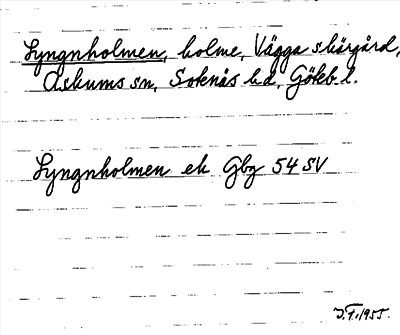 Lyngnholmen, holme, Vägga skärgård,
Askums sn, Sotenäs hd, Göteb. l.
Lyngnholmen ek Gbg 54 SV
J.F. 1955.